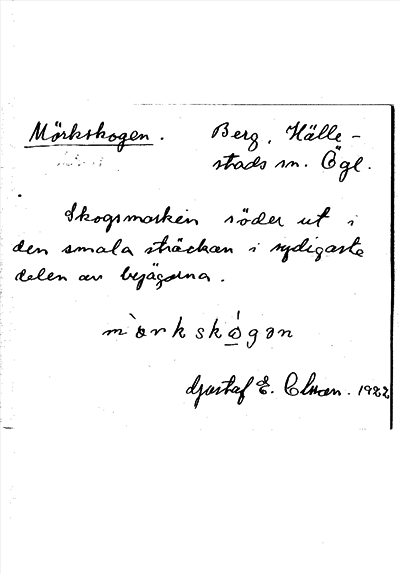 Mörkskogen.
Berg, Hälle-
stads sn. Ögl.
Skogsmarken söder ut i
den smala sträckan i sydigaste
delen av begägorna.
m`ɵrkskógən
Gustaf E. Clsson. 1922